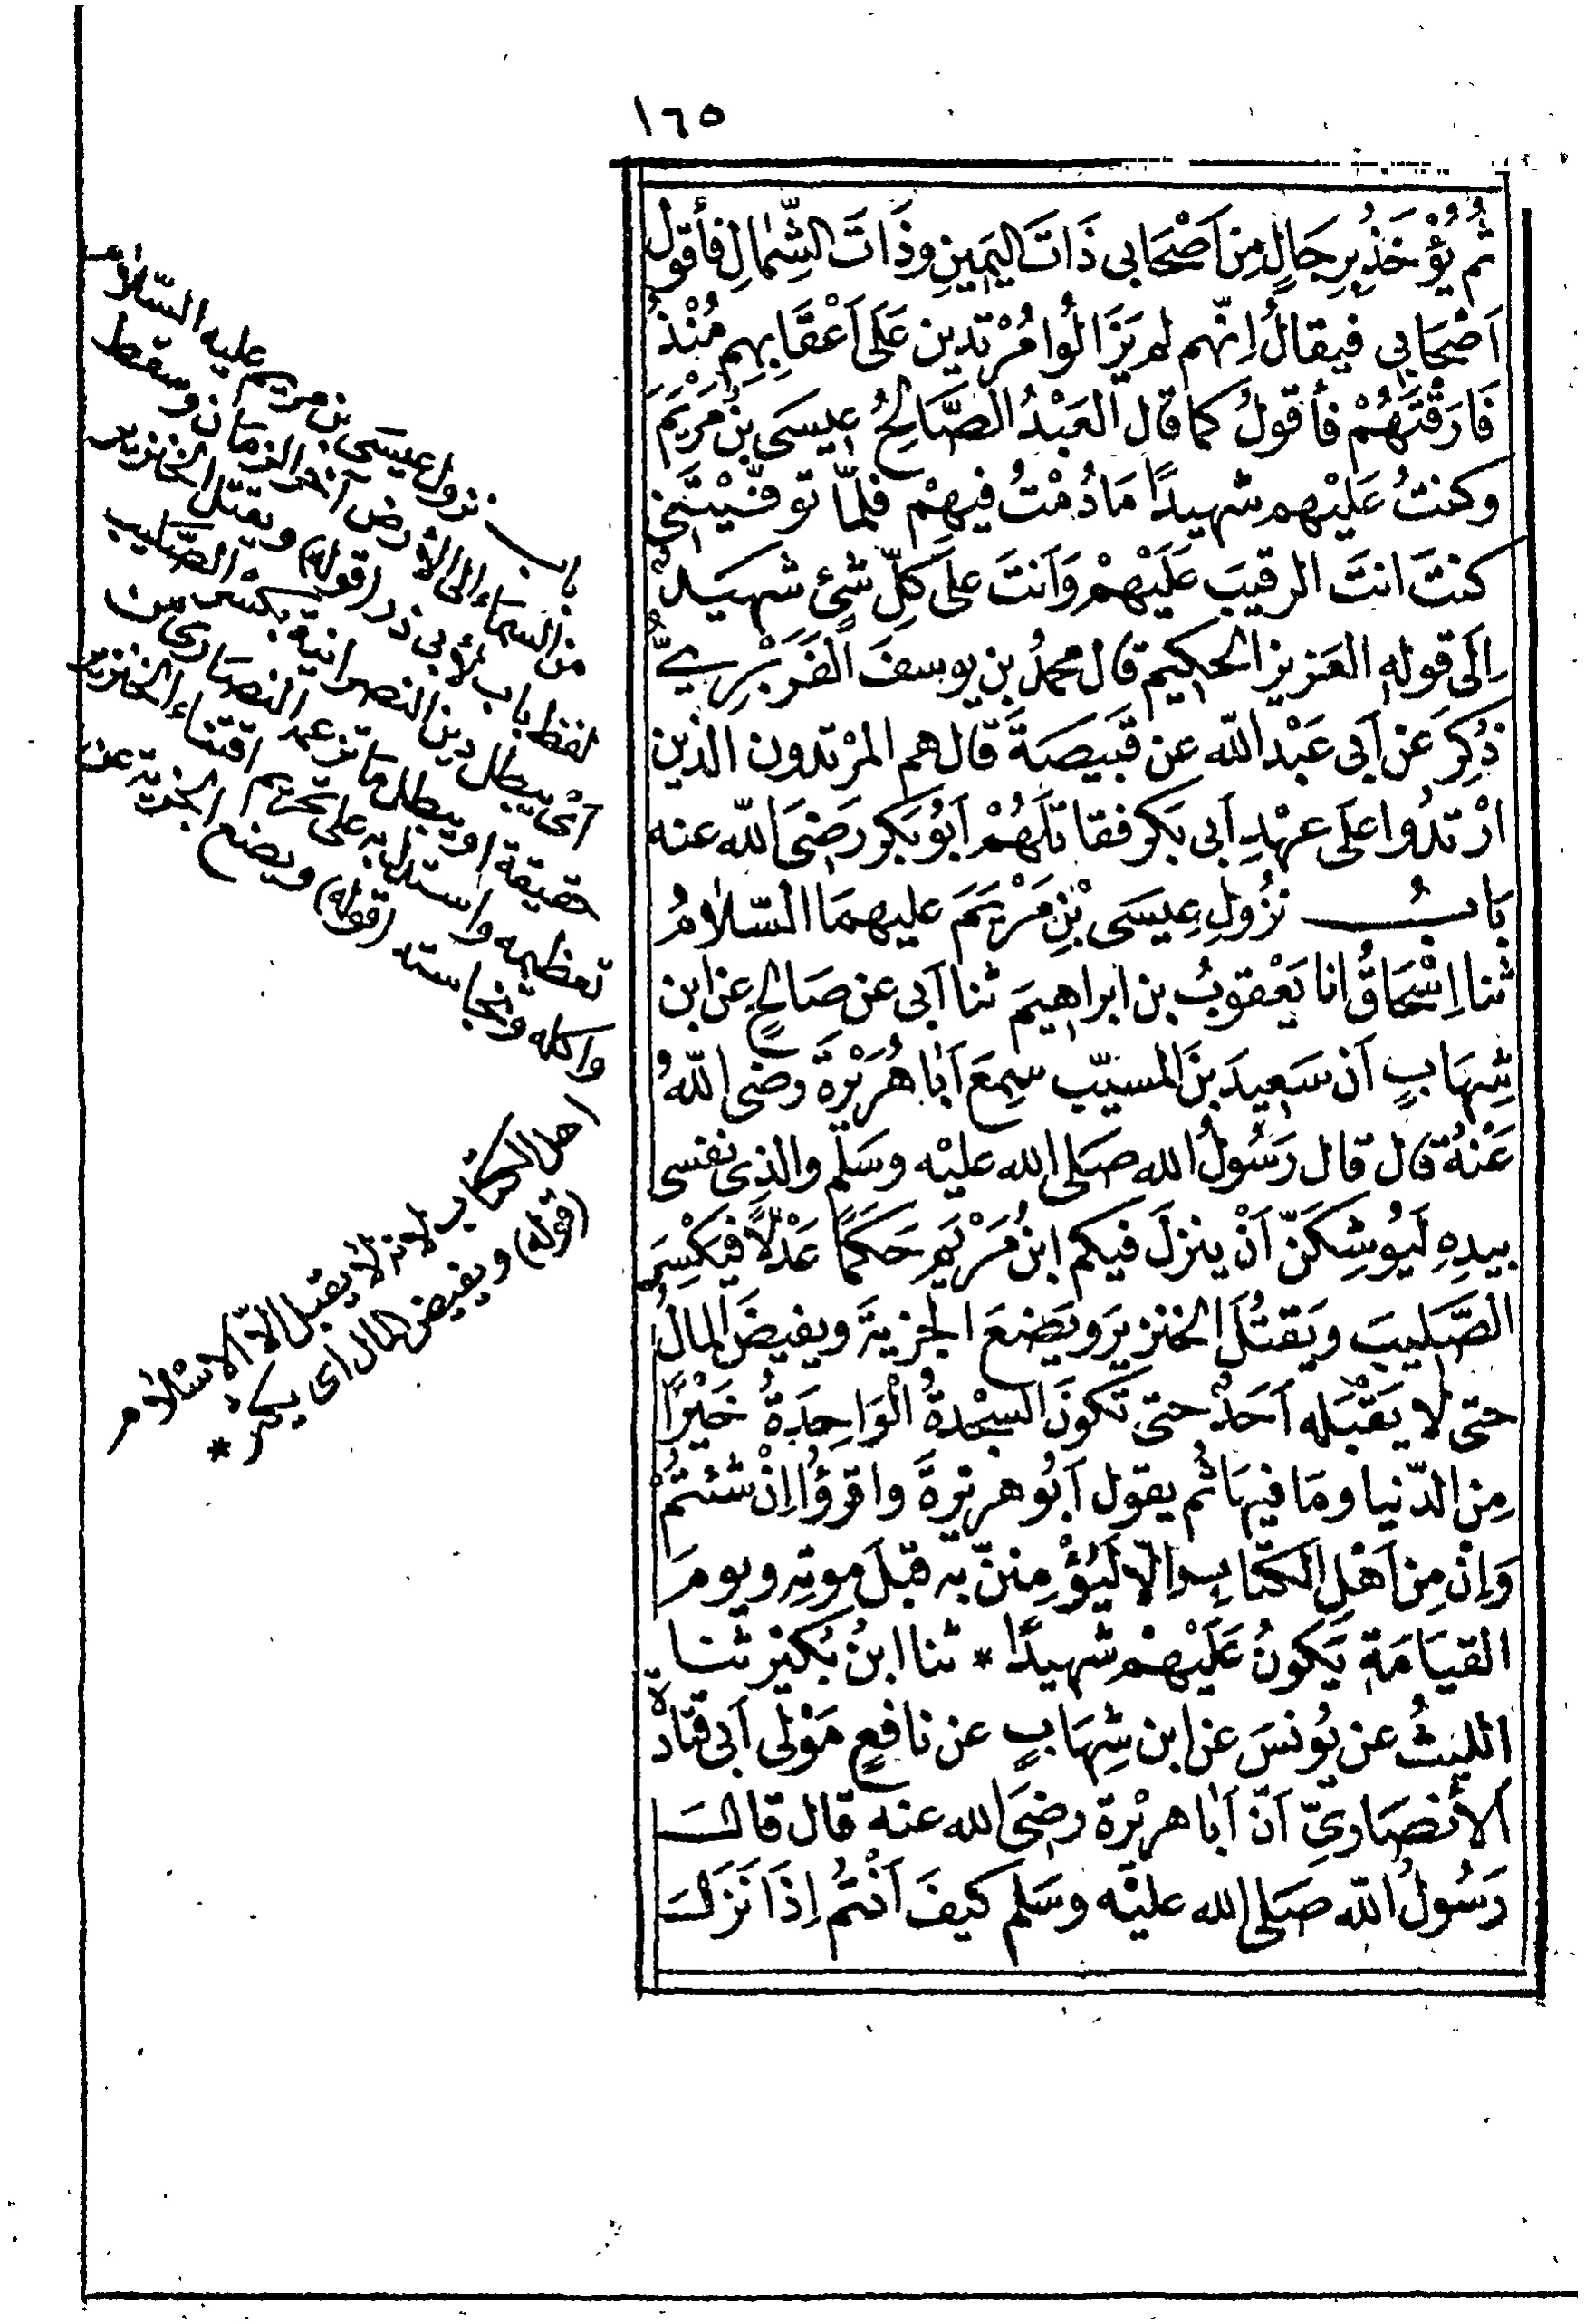 ١٦٥
ثُمَّ يُؤْخَذُ بِرِجَالٍ مِنْ اَصْحَابِى ذَاتَ اليَمِينِ وذَاتَ الشِّمَالِ فأقول
اَصْحَابِى فيقالُ اِنّهم لم يَزَالُوا مُرْتدين عَلَى اَعْقَابِهِم مُنْذُ
فَارَقْتَهُمْ فأقولُ كما قال العَبْدُ الصَّالِحُ عِيسَى بْنُ مَرْيَمَ
وكنتُ عَلَيْهِم شهيدًا مَا دُمْتُ فيهِمْ فلمّا توفّيْتَنِى
كنتَ انتَ الرقيبَ عَلَيْهِمْ وَاَنتَ على كلِّ شئٍ شهيدٌ
اِلَى قولهِ العَزيزِ الحكيم قال محمدُ بن يوسفَ الفَرَبْرِيُّ
ذُكِرَ عَن اَبى عَبْد الله عن قَبيصَةَ قال هم المرْتدون الذين
ارْتدُوا عَلَى عهْدِ اَبى بَكر فقاتلَهُمْ اَبُو بَكر رَضِىَ الله عنه
بَابُ نزُولِ عِيسَى بْنِ مَرْيَمَ عليهمَا السّلامُ
ثنا اِسْحَاقُ انا يَعْقوبُ بن ابراهِيمَ ثنا اَبى عن صَالِحٍ عن ابن
شِهَابٍ اَن سَعِيدَ بنَ المسيّب سِمِعَ اَبَا هُرَيْرَةَ رضى اللهُ
عَنْهُ قال قال رَسُولُ الله صَلى الله عليْه وسَلم والذِى نفسى
بيدِهِ لَيُوشِكَنّ اَنْ ينزلَ فيكم ابنُ مَرْيَم حَكَمًا عَدْلًا فيَكْسِرَ
الصَّليبَ ويَقتُلَ الخنزيرَ ويَضعَ الجزيةَ ويفيضَ المالُ
حتى لا يَقْبَله اَحَدٌ حتى تَكونَ السجْدةُ الْوَاحِدَةُ خَيْرًا
مِن الدّنيا ومَا فيهَا ثُم يقول اَبُو هريرةَ واقرؤُا اِنْ شئتُمْ
وَاِنْ مِن اَهْلِ الكتَابِ اِلّا لَيُؤْمِننّ به قبْلَ موتِه ويومَ
القيَامَةِ يَكونُ عَلَيْهِمْ شهيدًا * ثنا ابنُ بُكَيْر ثنا
الليثُ عن يُونسَ عن ابن شِهَابٍ عن نافعٍ مَوْلى اَبى قتادَةَ
الأنصَارىِّ اَنّ اَبَا هريْرة رضىَ الله عنه قال قال
رَسُولُ اللهِ صَلى الله عليْه وسَلم كيفَ اَنْتُم اِذَا نَزَلَ
باب نزول عيسى بن مريم عليه السّلام
من السماء الى الأرض آخر الزمان وسقط
لفظ باب لأبى ذر (قوله) ويقتل الخنزير
أى يبطل دين النصرانية بكسْر الصّليب
حقيقة او يبطل ما تزعمه النصارى من
تعظيمه واستدل به على تحريم اقتناء الخنزير
واكله ونجاسته (قوله) ويضع الجزية عن
اهل الكتاب لانه لا يقبل الّا الاسْلام
(قوله) ويفيض المال أى يكثر *